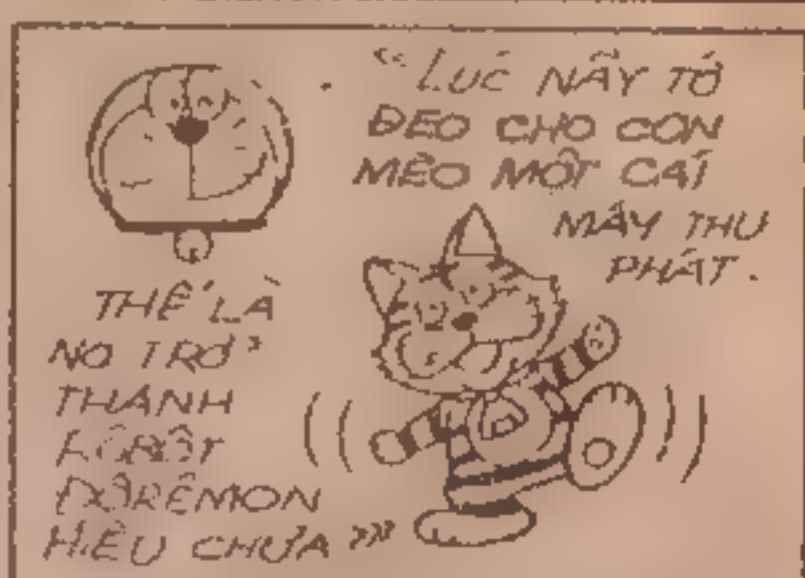 "LÚC NÃY TỚ
ĐEO CHO CON
MÈO MỘT CÁI
MÁY THU
PHÁT.
THẾ LÀ
NÓ TRỞ
THÀNH
RÔBỐT
ĐÔRÊMON
HIỂU CHƯA"